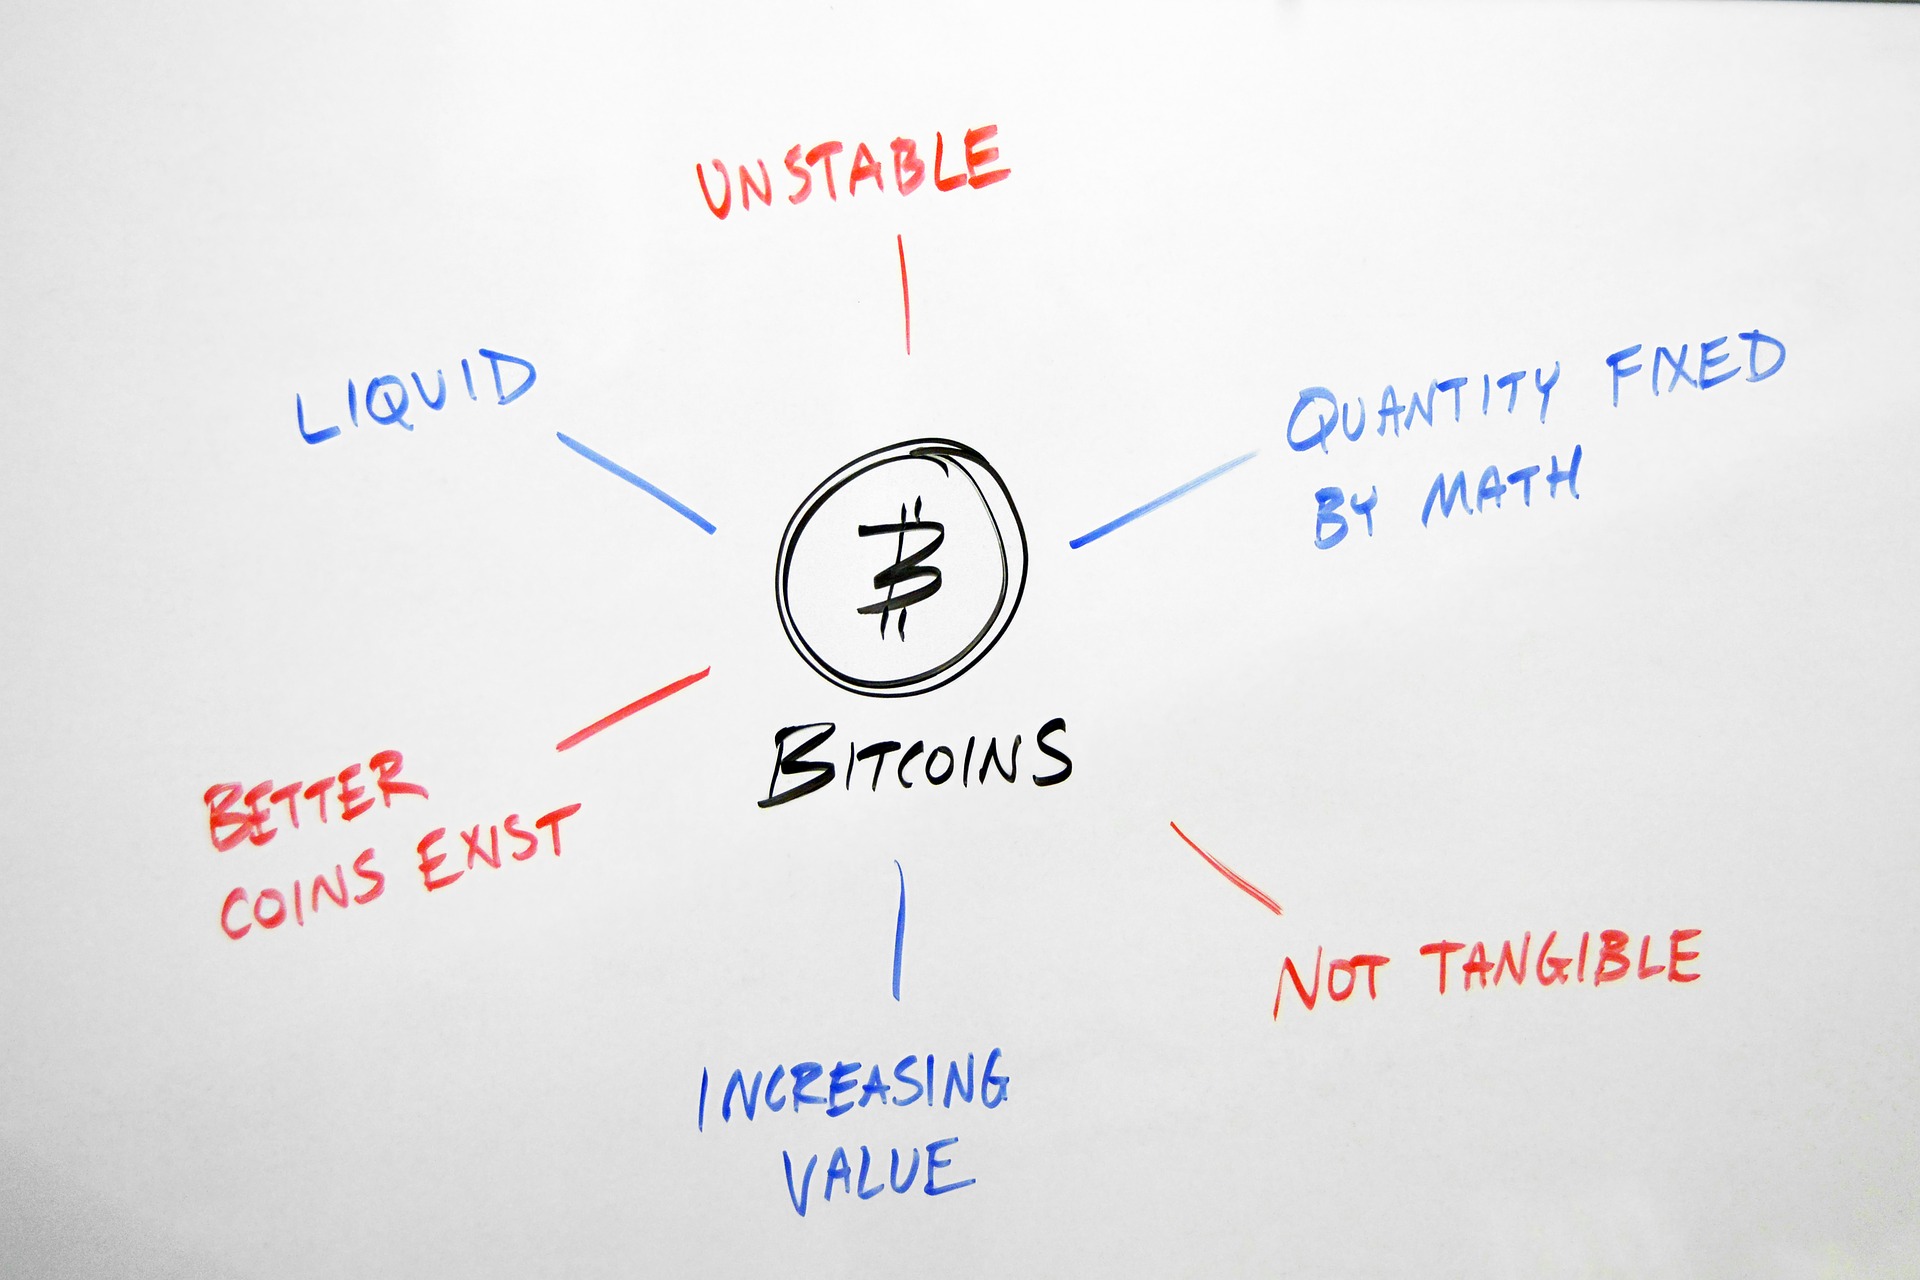 UNSTABLE
LIQUID
QUANTITY FIXED
BY MATH
₿
BITCOINS
BETTER
COINS EXIST
NOT TANGIBLE
INCREASING
VALUE